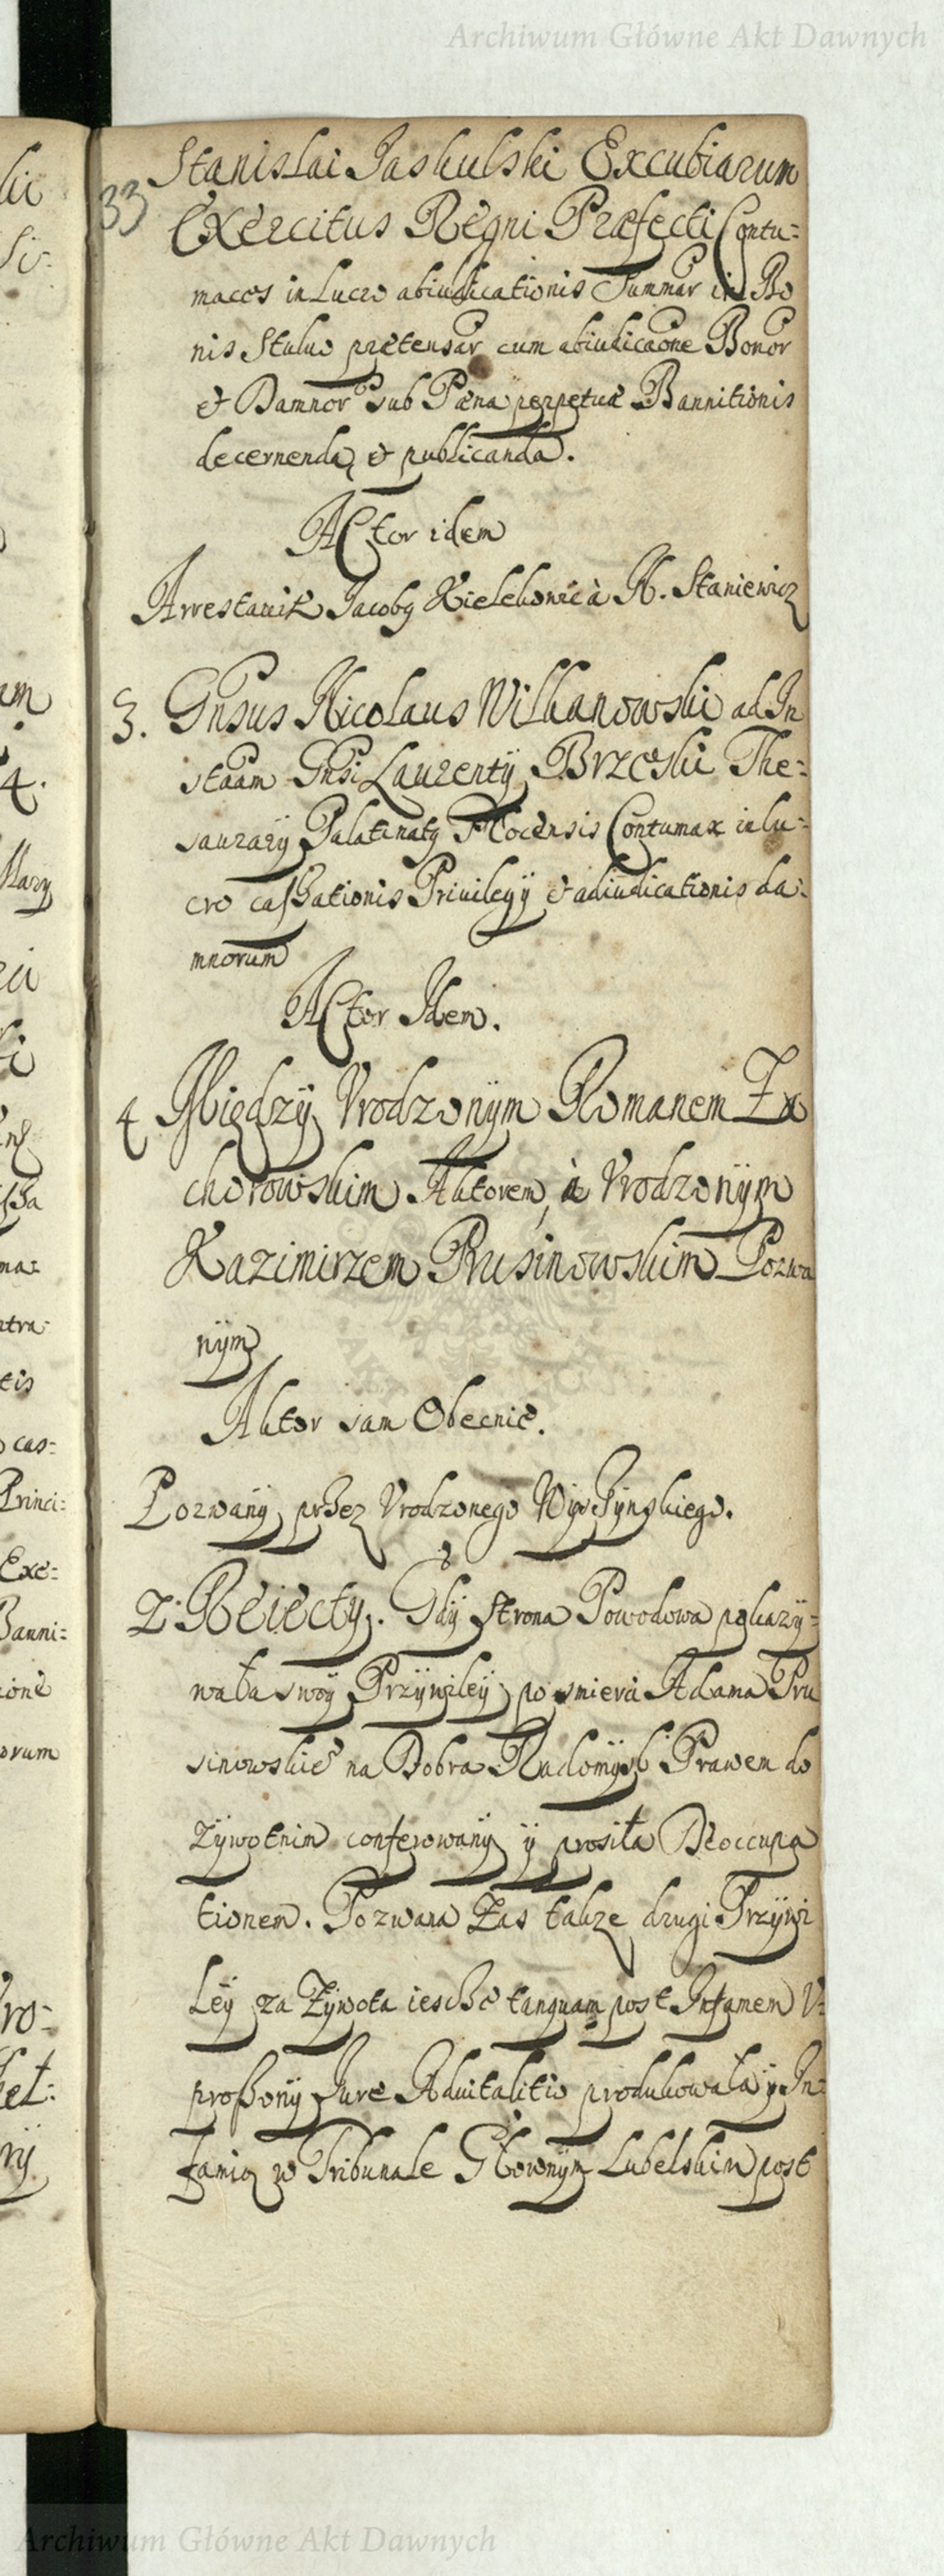 Archiwum Główne Akt Dawnych
33
Stanislai Jaskulski Excubiarum
Exercitus Regni Præfecti Contu=
maces in Lucro abiudicationis Summar in Bo
nis Stulno prætensar cum abiudicaõne Bonor
et Damnor sub Pæna perpetuæ Bannitionis
decernenda, et publicanda.
Actor idem
Arrestavit Jacobg Kielekowic à N. Staniewicz
3. Gnsus Nicolaus Wilkanowski ad In
staam Gnsi Laurentÿ Brzeski The=
saurarÿ Palatinatg Plocensis Contumax in lu=
cro cassationis Privilegÿ et adiudicationis da=
mnorum
Actor Idem.
4 Między Vrodzonÿm Romanem Za
chorowskim Aktorem, à Vrodzonÿm
Kazimirzem Rusinowskim Pozwa
nÿm
Aktor sam Obecnie.
Pozwanÿ przez Vrodzonego
Z Reiectÿ. Gdÿ Strona Powodowa pokazÿ=
wała swoÿ Przÿwileÿ po smierci Adama Pru
sinowskieº na Dobra Radomÿsl Prawem do
zÿwotnim conferowanÿ ÿ prosiła Deoccupa
tionem. Pozwana Zas takze drugi Przÿwi
leÿ za Zÿwota iescze tanquam post Infamem V=
proszonÿ Jure Advitalitio produkowała ÿ In=
famią w Tribunale Głownÿm Lubelskim post
Archiwum Główne Akt Dawnych